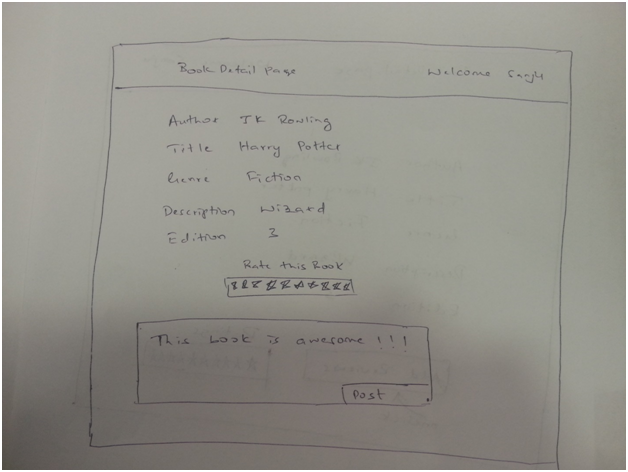 Book Detail Page Welcome Sanju
Author JK Rowling
Title Harry Potter
Genre Fiction
Description Wizard
Edition 3
Rate this Book
This book is awesome !!!
Post